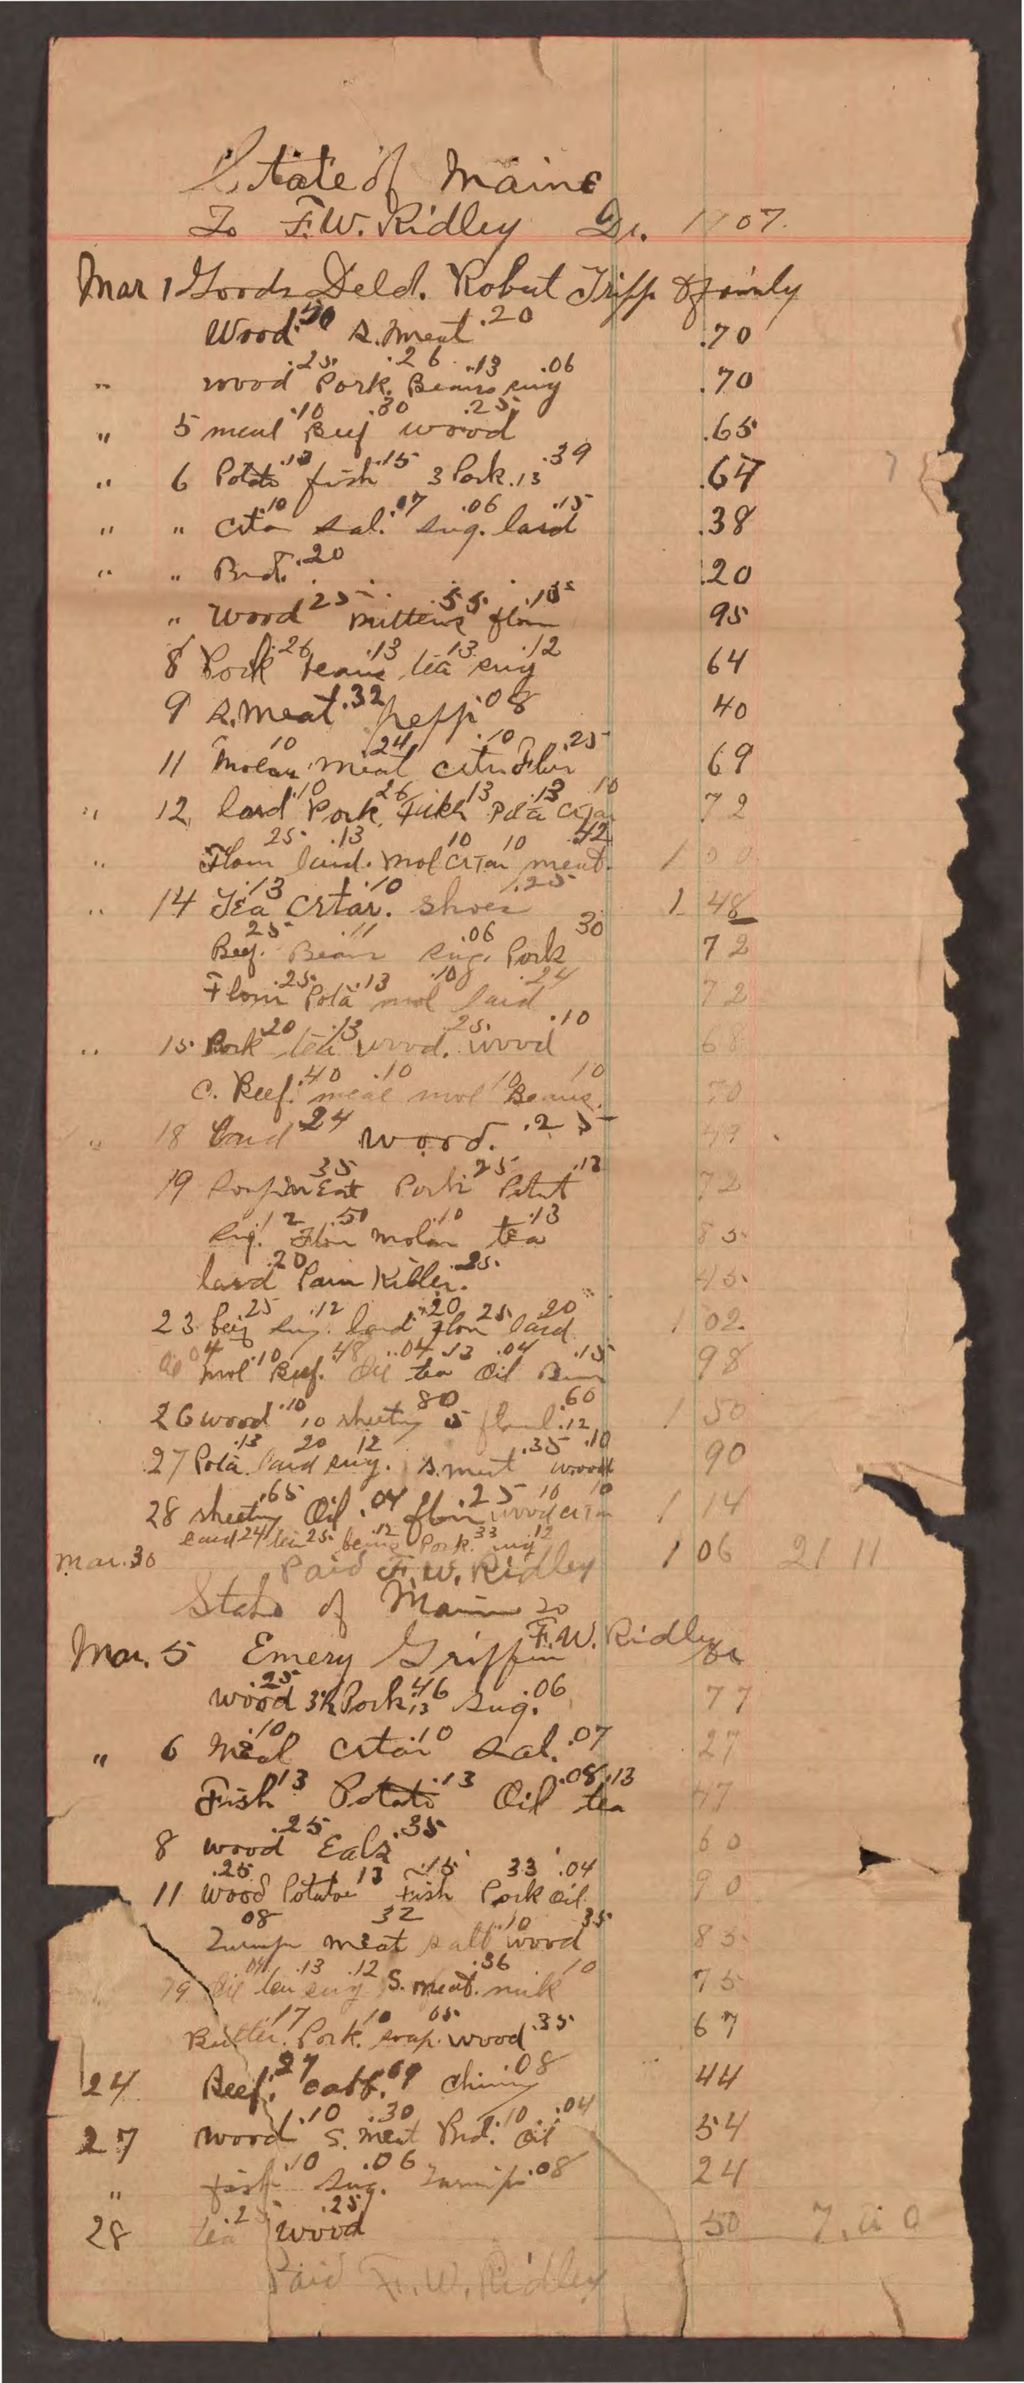 State of Maine
To F.W. Ridley Dr. 1907.
Mar 1 Goods Deld. Robert Tripp & family
Wood .50 S. Meat .20 .70
" wood .25 Pork .26 Beans .13 sug .06 .70
" 5 meal .10 Beef .30 wood .25 .65
" 6 Potato .13 fish .15 3 Pork .13 .39 .67
" " Crtar .10 Sal. .07 Sug. .06 lard .15 .38
" " Brd. .20 .20
" Wood 25 Mittens .55 flour 95
8 Pork .26 beans .13 tea .13 sug .12 64
9 S. meat .32 pepp .08 40
11 Molas 10 meat 24 crtar .10 Flour .25 69
" 12 lard .10 Pork 26 Fish 13 Pota .13 Crtar 10 72
" Flour 25 lard .13 mol 10 CrTar 10 meat .42 1 00
" 14 Tea .13 Crtar .10 shoes 1.25 1 48
Beef 25 Beans 11 sug. .06 Pork 30 72
Flour .25 Pota .13 mol .10 lard .24 72
" 15 Pork 20 tea .13 wood .25 wood .10 68
C. Beef. .40 meal .10 mol 10 Beans 10 70
" 18 lard 24 wood. .25 49
19 Soupmeat 35 Pork 25 Potat .12 72
sug. 12 Flour .50 molas .10 tea .13 85
lard .20 Pain Killer .25 45
23 .25 sug. .12 lard .20 Flour 25 lard 20 1 02
Oil 04 mol .10 Beef. 48 Oil .04 tea .13 Oil .04 Bean .15 98
26 wood .10 10 sheeting 80 5 flanl .12 .60 1 50
27 Pota .13 lard 20 sug. 12 S. meat .35 wood .10 90
28 sheeting .65 Oil .04 flour .25 wood 10 CrTar 10 1 14
lard 24 tea 25 .12 Pork 33 sug 12
Mar. 30 Paid F.W. Ridley 1 06 21 11
State of Maine To
F.W. Ridley Dr
Mar. 5 Emery Griffin
wood .25 3½ Pork 13 .46 Sug. .06 77
" 6 Meal .10 crtar 10 Sal. .07 27
Fish 13 Potato .13 Oil .08 tea .13 47
8 wood .25 .35 60
11 Wood .25 Potatoe 13 Fish .15 Pork 33 Oil .04 90
Turnip 08 meat 32 salt .10 wood 35 85
19 Oil 04 tea .13 sug .12 S. meat .36 milk 10 75
Butter 17 Pork 10 soap 05 wood .35 67
24 Beef. .27 .09 .08 44
27 wood .10 S. meat .30 Brd. .10 Oil .04 54
" fish 10 Sug. .06 Turnip .08 24
28 tea 25 wood .25 50 7.00
Paid F.W. Ridley